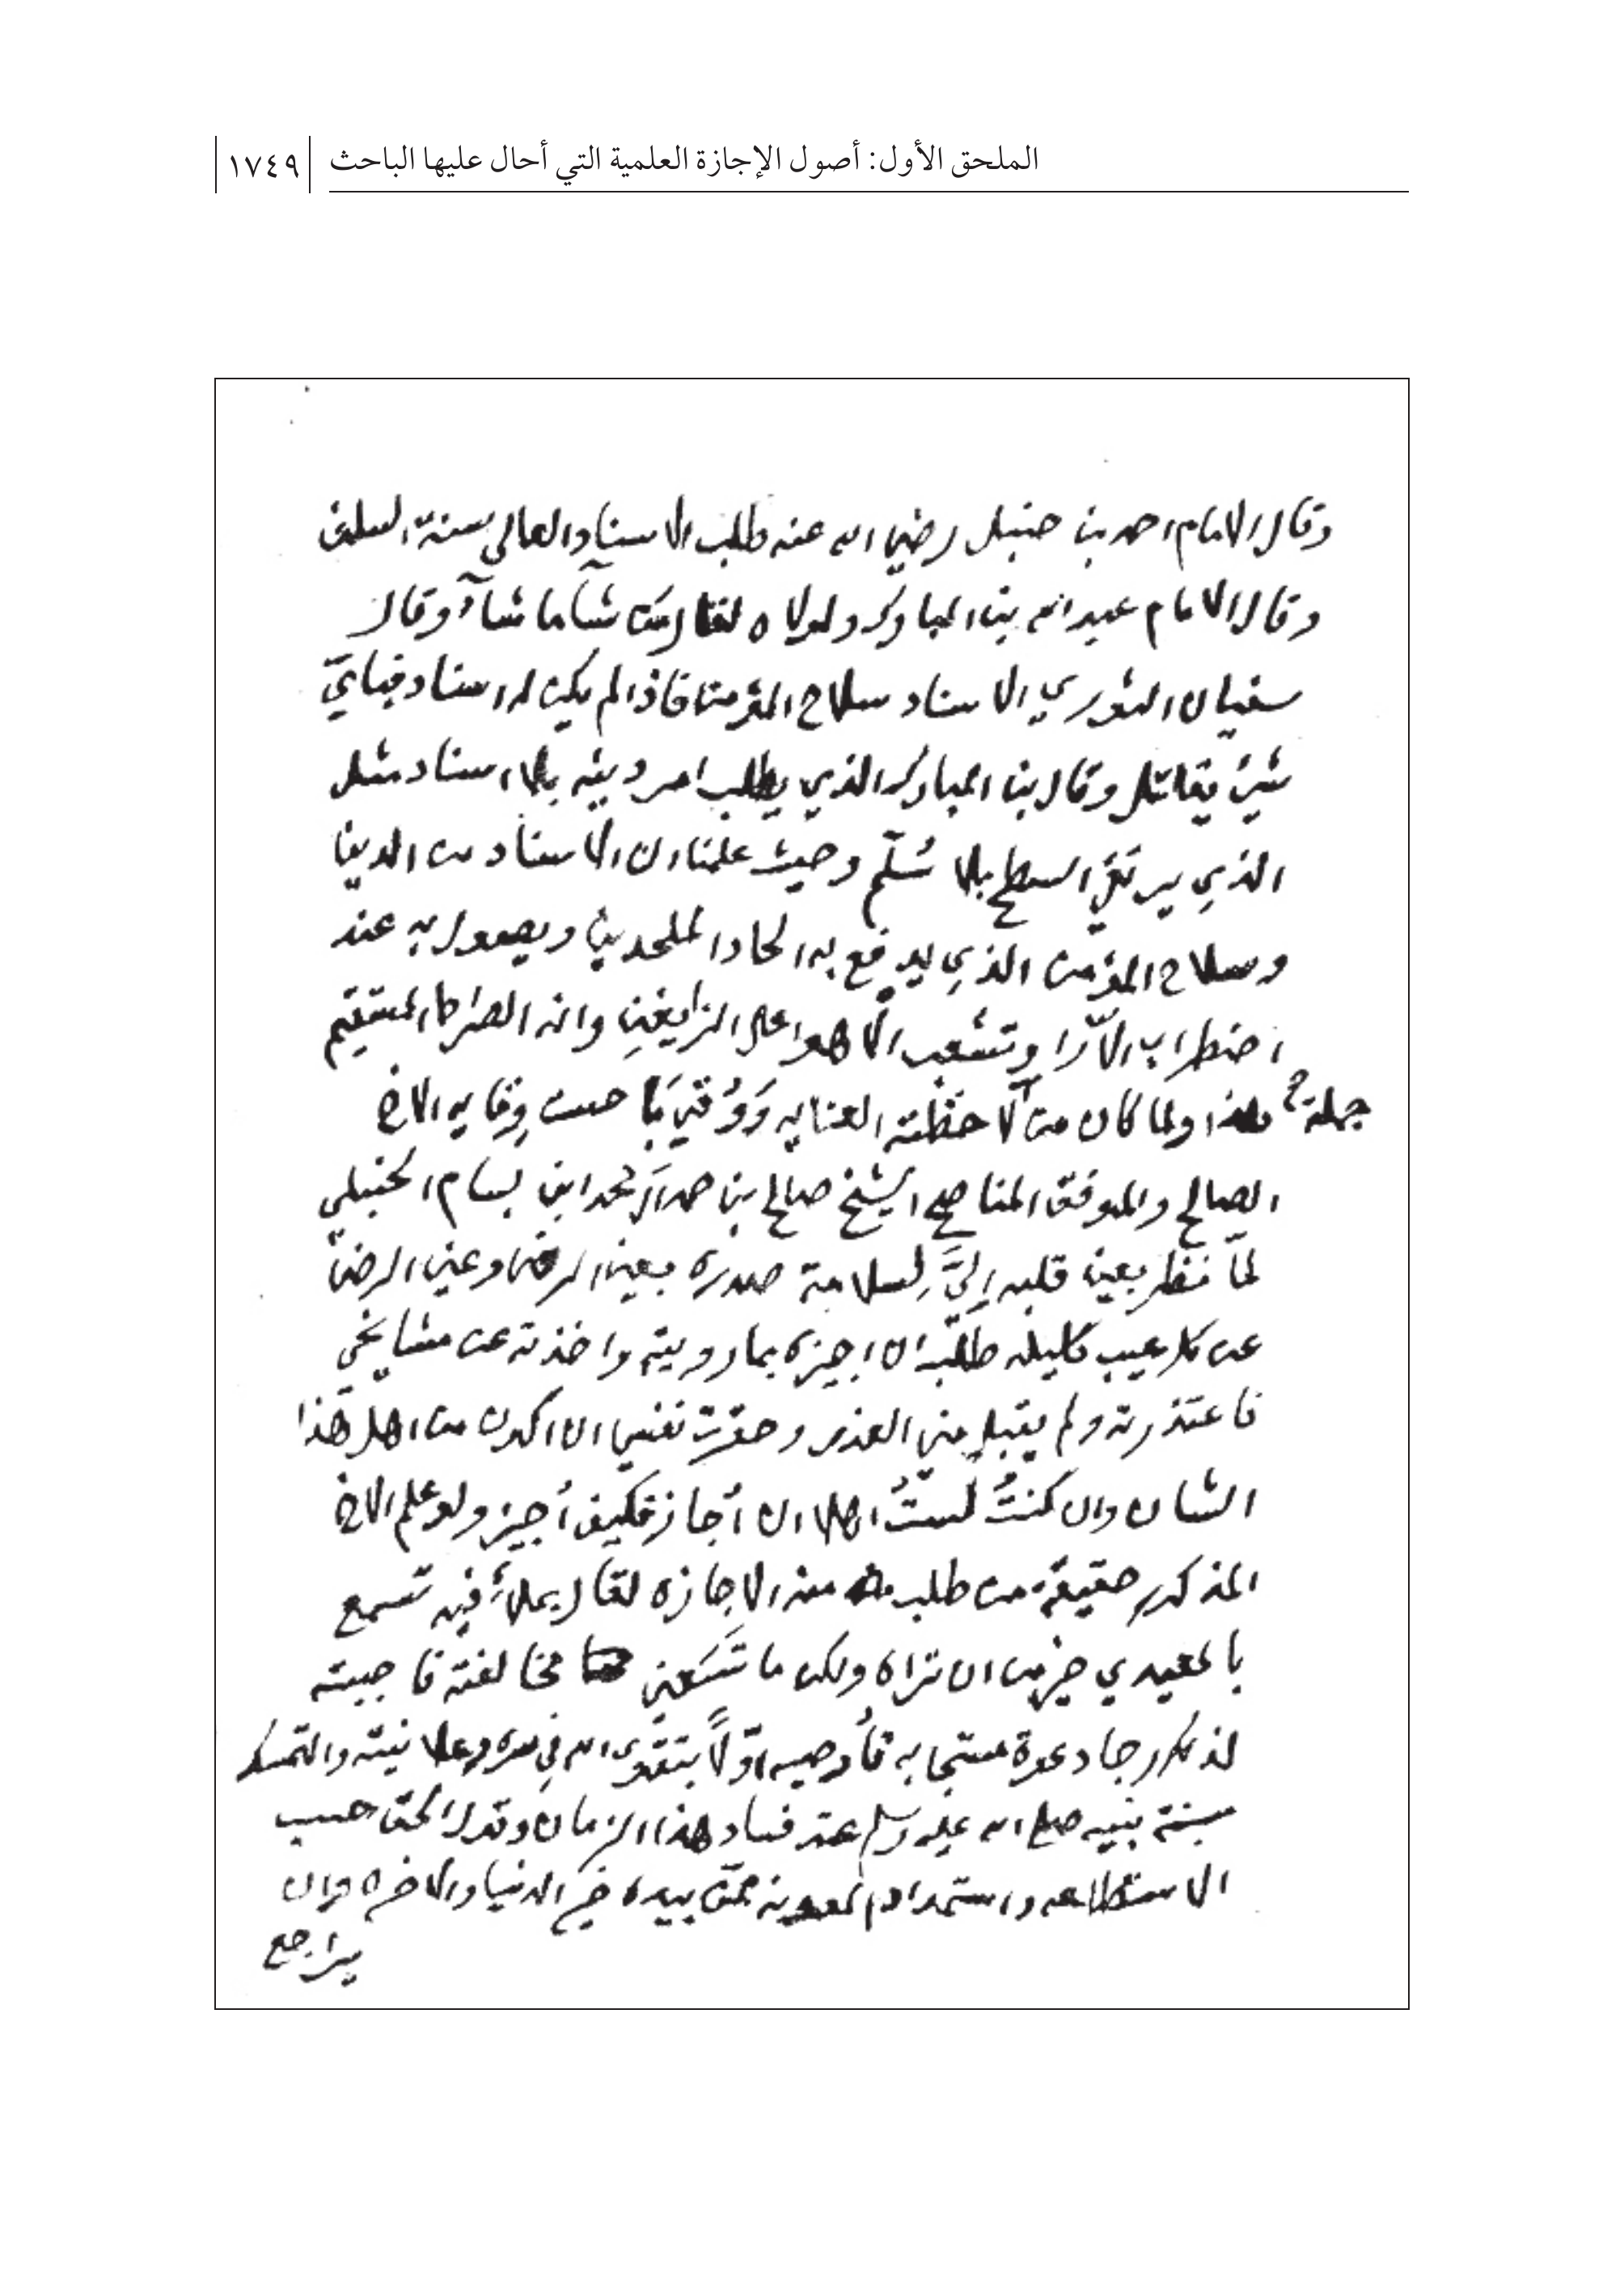 الملحق الأول: أصول الإجازة العلمية التي أحال عليها الباحث ١٧٤٩
وقال الامام احمد بن حنبل رضي الله عنه طلب الاسناد العالي سنة السلف
وقال الامام عبد الله بن المبارك ولولاه لقال من شآ ما شآء وقال
سفيان الثوري الاسناد سلاح المؤمن فاذا لم يكن له اسناد فبايّ
شيء يقاتل وقال بن المبارك الذي يطلب امر دينه بلا اسناد مثل
الذي يرتقي السطح بلا سُلّم وحيث علمنا ان الاسناد من الدين
وسلاح المؤمن الذي يدفع به الحاد الملحدين ويصول به عند
اضطراب الآرا وتشعب الاهوا على الزايغين وانه الصراط المستقيم
جملة هذا ولما كان من لاحظته العناية حسن وقاية الاخ
الصالح والموفق الناصح الشيخ صالح بن حمد آل محمد ابن بسام الحنبلي
لمّا نظر بعين قلبه اليَّ لسلامة صدره بعين الرضى وعين الرضى
عن كل عيب كليلة طلب ان اجيزه بما رويته واخذته عن مشايخي
فاعتذرته ولم يقبل مني العذر وحقرت نفسي ان اكون من اهل هذا
الشان وان كنتُ لستُ اهلا ان أجاز فكيف أجيز ولو علم الاخ
المذكور حقيقة من طلب منه الاجازه لقال فيه تسمع
بالمعيدي خير من ان تراه ولكن ما تسعني مخالفته فاجبته
لذلك رجا دعوة مستجابه فأوصيه اوّلاً بتقوى الله في سره وعلانيته والتمسك
بسنة نبيه صلى الله عليه وسلم عند فساد هذا الزمان وقول الحق حسب
الاستطاعه واستمداد المعونة ممن بيده خير الدنيا والاخره وان
يراجع